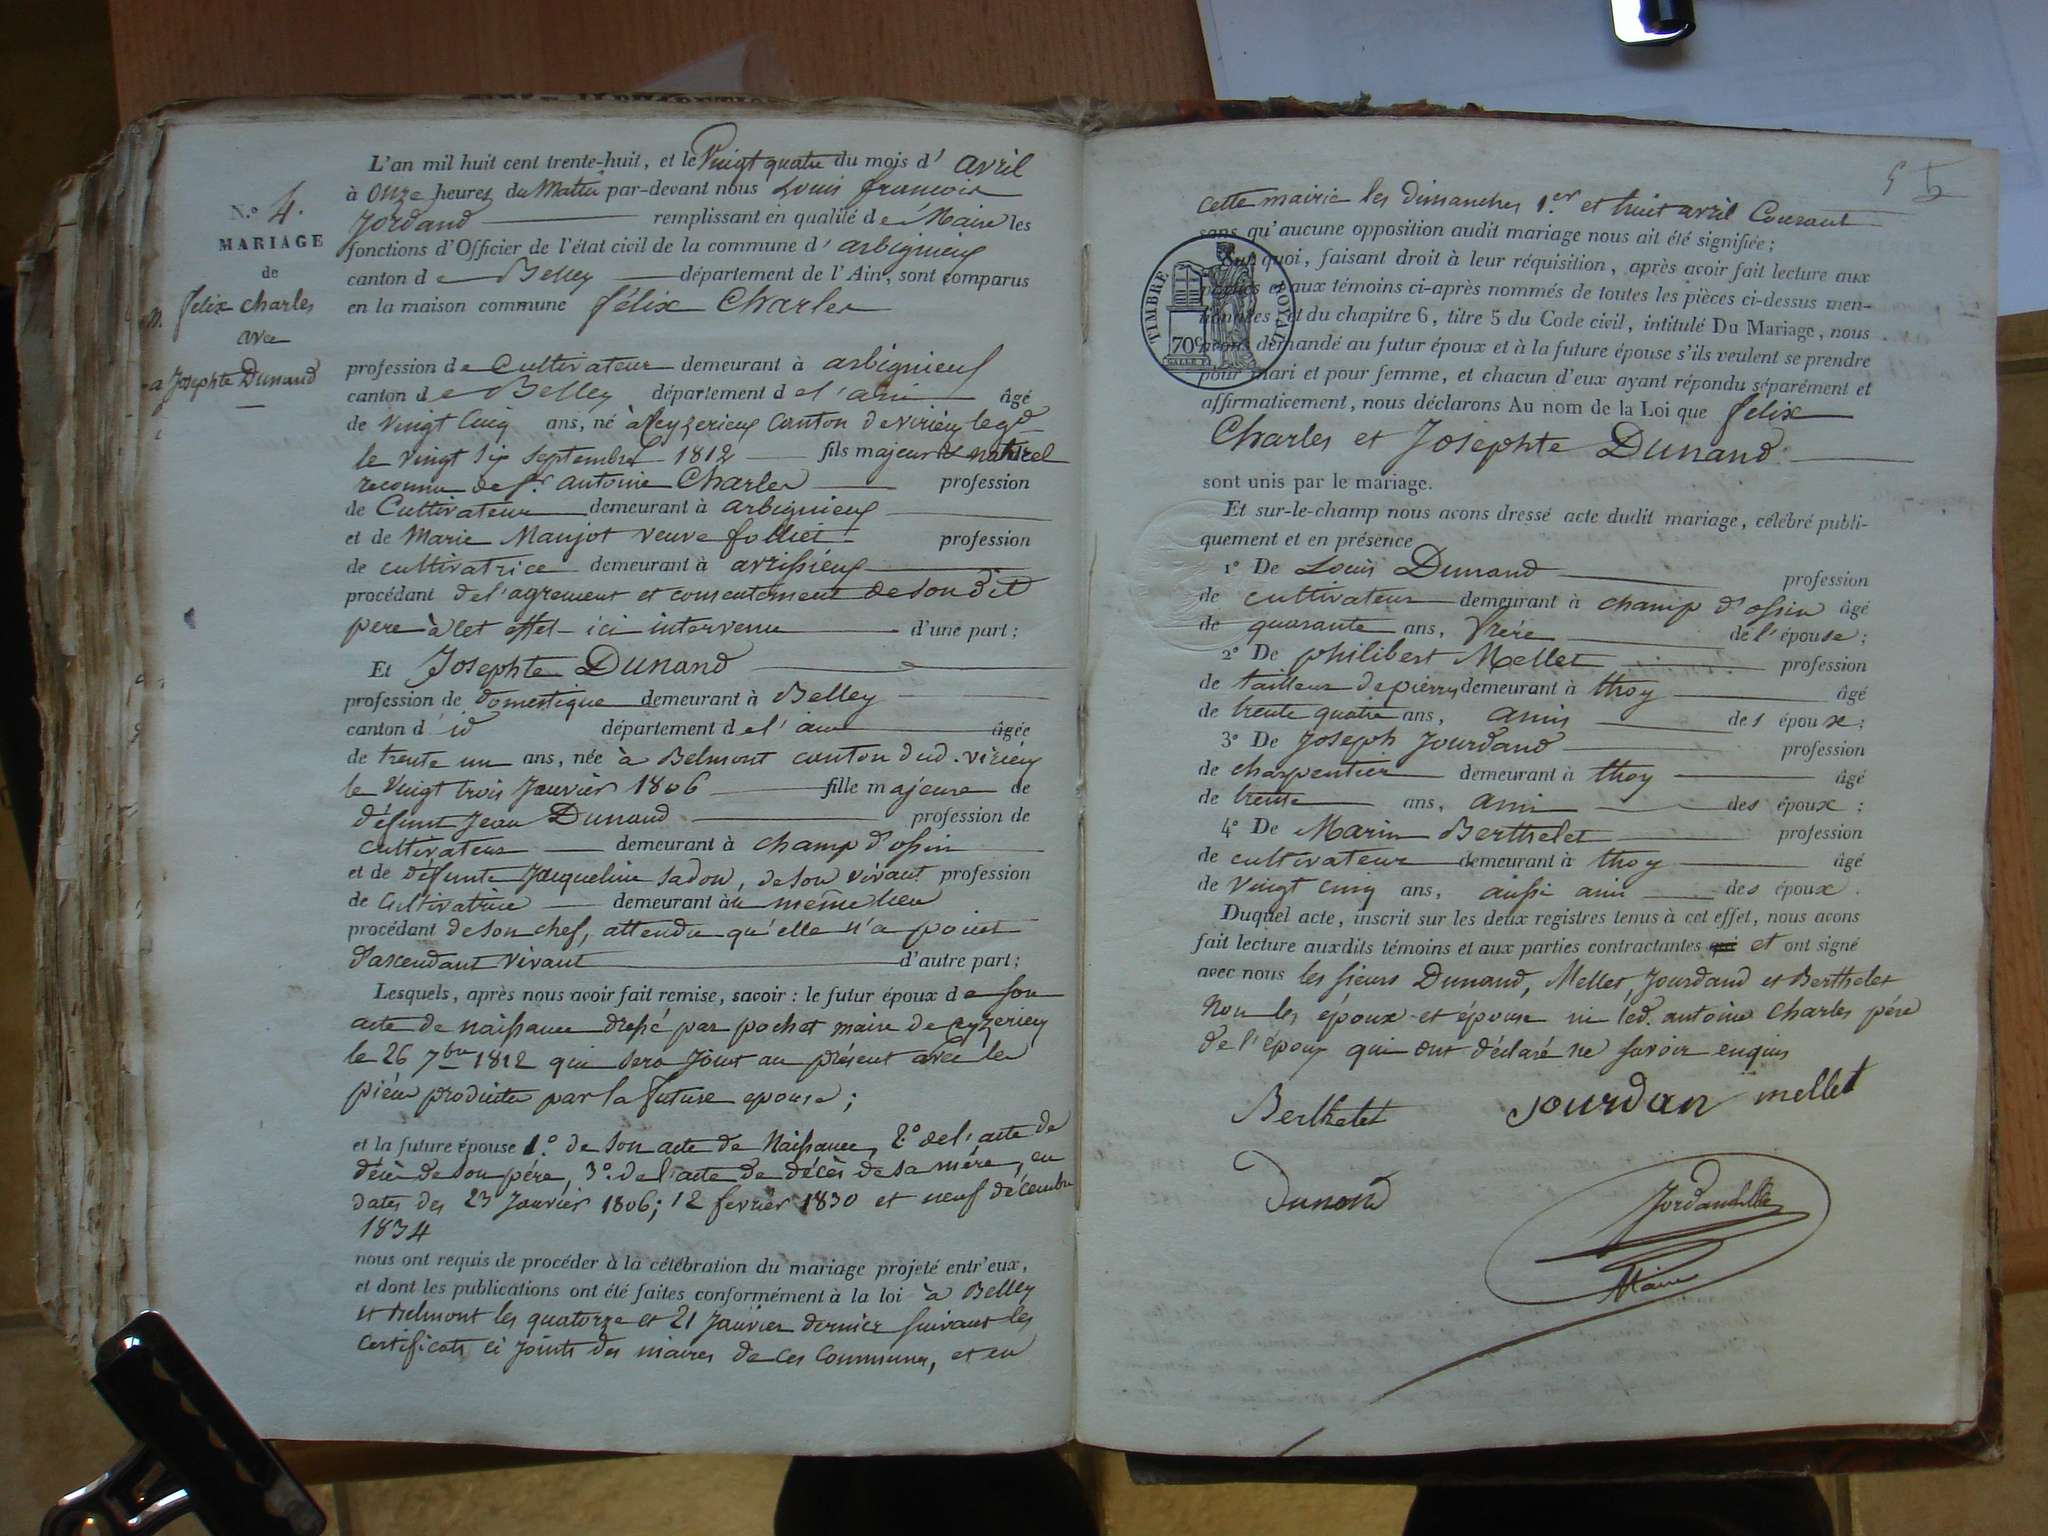 N.º 4.
MARIAGE
de
felix charles
avec
Josephte Dunand
L'an mil huit cent trente-huit, et le Vingt quatre du mois d' avril
à Onze heures du Matin par-devant nous Louis francois
Jordand remplissant en qualité de Maire les
fonctions d'Officier de l'état civil de la commune d' arbignieu
canton de Belley département de l'Ain, sont comparus
en la maison commune félix Charles
profession de Cultivateur demeurant à arbignieu
canton de Belley département de l'ain âgé
de Vingt Cinq ans, né à Ceyzerieu Canton de virieu le gd
le vingt six septembre 1812 fils majeur et naturel
reconnu de sr. antoine Charles profession
de Cultivateur demeurant à arbignieu
et de Marie Manjot veuve folliet profession
de cultivatrice demeurant à arvissieu
procédant de l'agrement et consentement de son dit
pere à cet effet ici intervenu d'une part ;
Et Josephte Dunand
profession de domestique demeurant à Belley
canton d' id département de l'ain âgée
de trente un ans, née à Belmont canton dud. virieu
le Vingt trois Janvier 1806 fille majeure de
défunt Jean Dunand profession de
cultivateur demeurant à champ d'ossin
et de défunte Jacqueline sadon, de son vivant profession
de Cultivatrice demeurant au même lieu
procédant de son chef, attendu qu'elle n'a point
d'ascendant vivant d'autre part ;
Lesquels, après nous avoir fait remise, savoir : le futur époux de son
acte de naissance dressé par pochet maire de ceyzerieu
le 26 7bre 1812 qui sera joint au présent avec les
pièces produites par la future epouse ;
et la future épouse 1.º de son acte de Naissance, 2.º de l'acte de
décès de son père, 3.º de l'acte de décès de sa mère, en
dates des 23 Janvier 1806 ; 12 fevrier 1830 et neuf décembre
1834
nous ont requis de procéder à la célébration du mariage projeté entr'eux,
et dont les publications ont été faites conformément à la loi à Belley
et belmont les quatorze et 21 Janvier dernier suivant les
certificats ci joints des maires de ces communes, et en
5 5
cette mairie les dimanches 1.er et huit avril Courant
sans qu'aucune opposition audit mariage nous ait été signifiée ;
Sur quoi, faisant droit à leur réquisition, après avoir fait lecture aux
parties et aux témoins ci-après nommés de toutes les pièces ci-dessus men-
tionnées, et du chapitre 6, titre 5 du Code civil, intitulé Du Mariage, nous
avons demandé au futur époux et à la future épouse s'ils veulent se prendre
pour mari et pour femme, et chacun d'eux ayant répondu séparément et
affirmativement, nous déclarons Au nom de la Loi que felix
Charles et Josephte Dunand
sont unis par le mariage.
TIMBRE ROYAL
70c
Et sur-le-champ nous avons dressé acte dudit mariage, célébré publi-
quement et en présence
1º De Louis Dunand profession
de cultivateur demeurant à champ d'ossin âgé
de quarante ans, frère de l'épouse ;
2º De philibert Mellet profession
de tailleur de pierre demeurant à thoy âgé
de trente quatre ans, amis des époux ;
3º De Joseph Jourdand profession
de charpentier demeurant à thoy âgé
de trente ans, ami des époux ;
4º De Marin Berthelet profession
de cultivateur demeurant à thoy âgé
de vingt cinq ans, aussi ami des époux.
Duquel acte, inscrit sur les deux registres tenus à cet effet, nous avons
fait lecture auxdits témoins et aux parties contractantes qui et ont signé
avec nous les sieurs Dunand, Mellet, Jourdand et Berthelet
Non les époux et épouse ni led. antoine Charles père
de l'époux qui ont déclaré ne savoir enquis
Berthelet Jourdan mellet
Dunand
Jordand
Maire